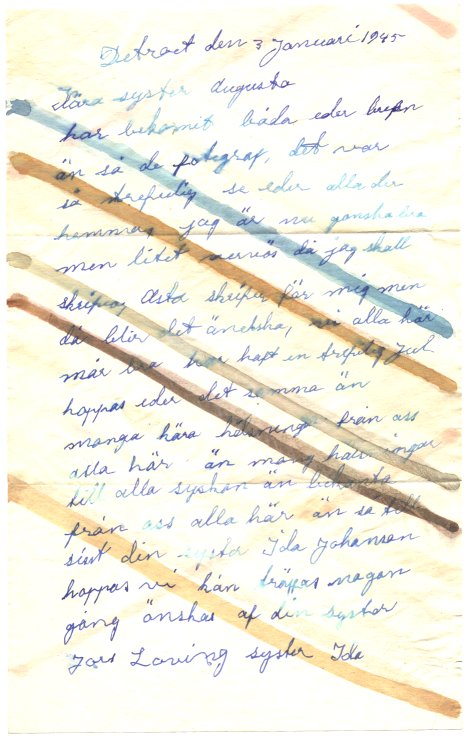 Detroet den 3 Januari 1945
Kära syster Augusta
har bekomit båda eder brefen
än så de fotegraf, det var
så trefulig se eder alla der
hemma, jag är nu ganska bra
men litet nerviös då jag skall
skrifva, Asta skrifver för mig men
då blir det änelsha, vi alla här
mår bra har haft en trefulig Jul
hoppas eder det samma än
manga kära hälsningar från oss
alla här än mang halsningar
till alla syskan än bekanta
från oss alla här än så till
sist din syster Ida Johanson
hoppas vi kan träffas nagon
gång önskas af din syster
Jors Loving syster Ida